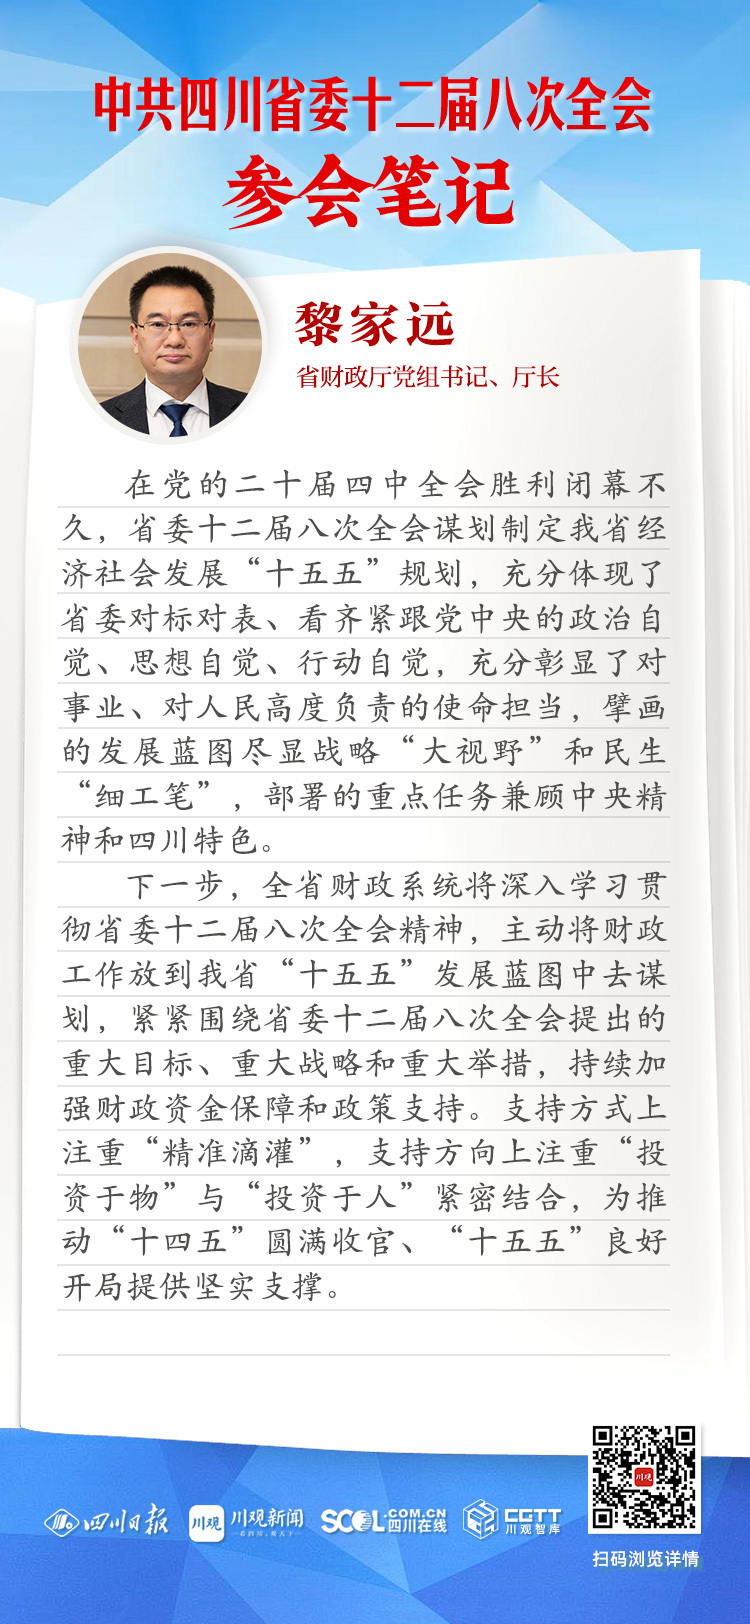 中共四川省委十二届八次全会
参会笔记
黎家远
省财政厅党组书记、厅长
在党的二十届四中全会胜利闭幕不
久，省委十二届八次全会谋划制定我省经
济社会发展“十五五”规划，充分体现了
省委对标对表、看齐紧跟党中央的政治自
觉、思想自觉、行动自觉，充分彰显了对
事业、对人民高度负责的使命担当，擘画
的发展蓝图尽显战略“大视野”和民生
“细工笔”，部署的重点任务兼顾中央精
神和四川特色。
下一步，全省财政系统将深入学习贯
彻省委十二届八次全会精神，主动将财政
工作放到我省“十五五”发展蓝图中去谋
划，紧紧围绕省委十二届八次全会提出的
重大目标、重大战略和重大举措，持续加
强财政资金保障和政策支持。支持方式上
注重“精准滴灌”，支持方向上注重“投
资于物”与“投资于人”紧密结合，为推
动“十四五”圆满收官、“十五五”良好
开局提供坚实支撑。
四川日报
川观 川观新闻
SCOL.COM.CN
四川在线
CGTT
川观智库
川观
扫码浏览详情